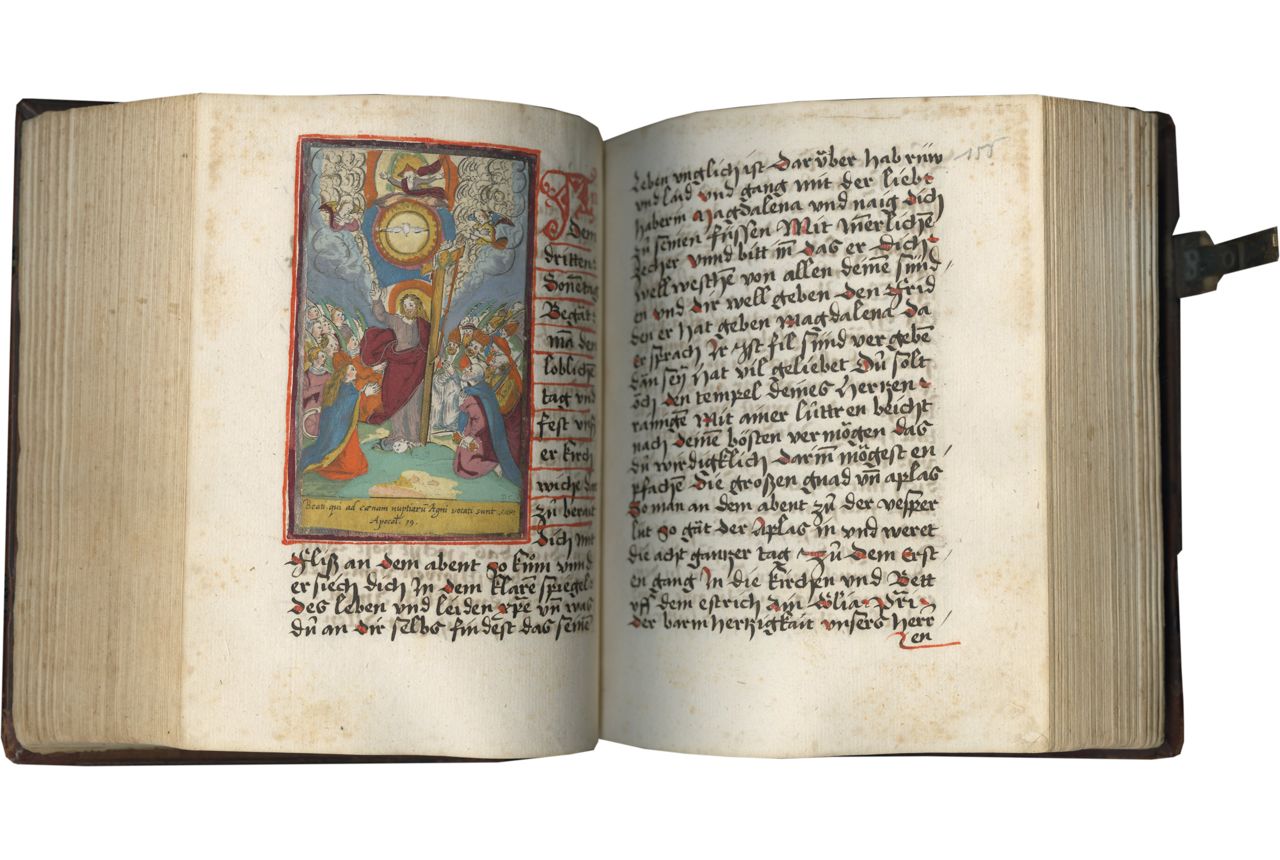 Beati qui ad cœnam nuptiarū Agni vocati sunt
Apocal. 19.
An
Dem
dritten
Sonnetag
Begāt
mā den
loblichē
tag und
fest unß
er kirch
wiche
zů berait
Dich mit
fliß an dem abent so kům und
ersiech dich In dem klarē spiegel
Des leben und leiden xpē uñ was
dů an dir selbs findest das seinē
155
Leben unglich ist dar über hab rüw
und laid und gang mit der liebē
haberin Magdalena und naig dich
zů seinen füssen Mit innerlichē
Zecher unnd bitt in das er dich
well weschen von allen deinē sünd
en und dir well geben den frid
den er hat geben Magdalena Da
er sprach Ir ist fil sünd vergebē
dan sey hat vil geliebet Dů solt
och den tempel deines Herzen
rainigē Mit ainer lüttren beicht
nach deinē bösten vermögen das
dů wirdigklich darin mögest en
pfachen die großen gnad uñ aplas
So man an dem abent zů der vesper
lüt so gāt der Aplas in und weret
die acht ganzer tag Zů dem Erst
en gang In die kirchen und Bett
uff dem estrich Ain
der barmhertzigkait unsers herr
en